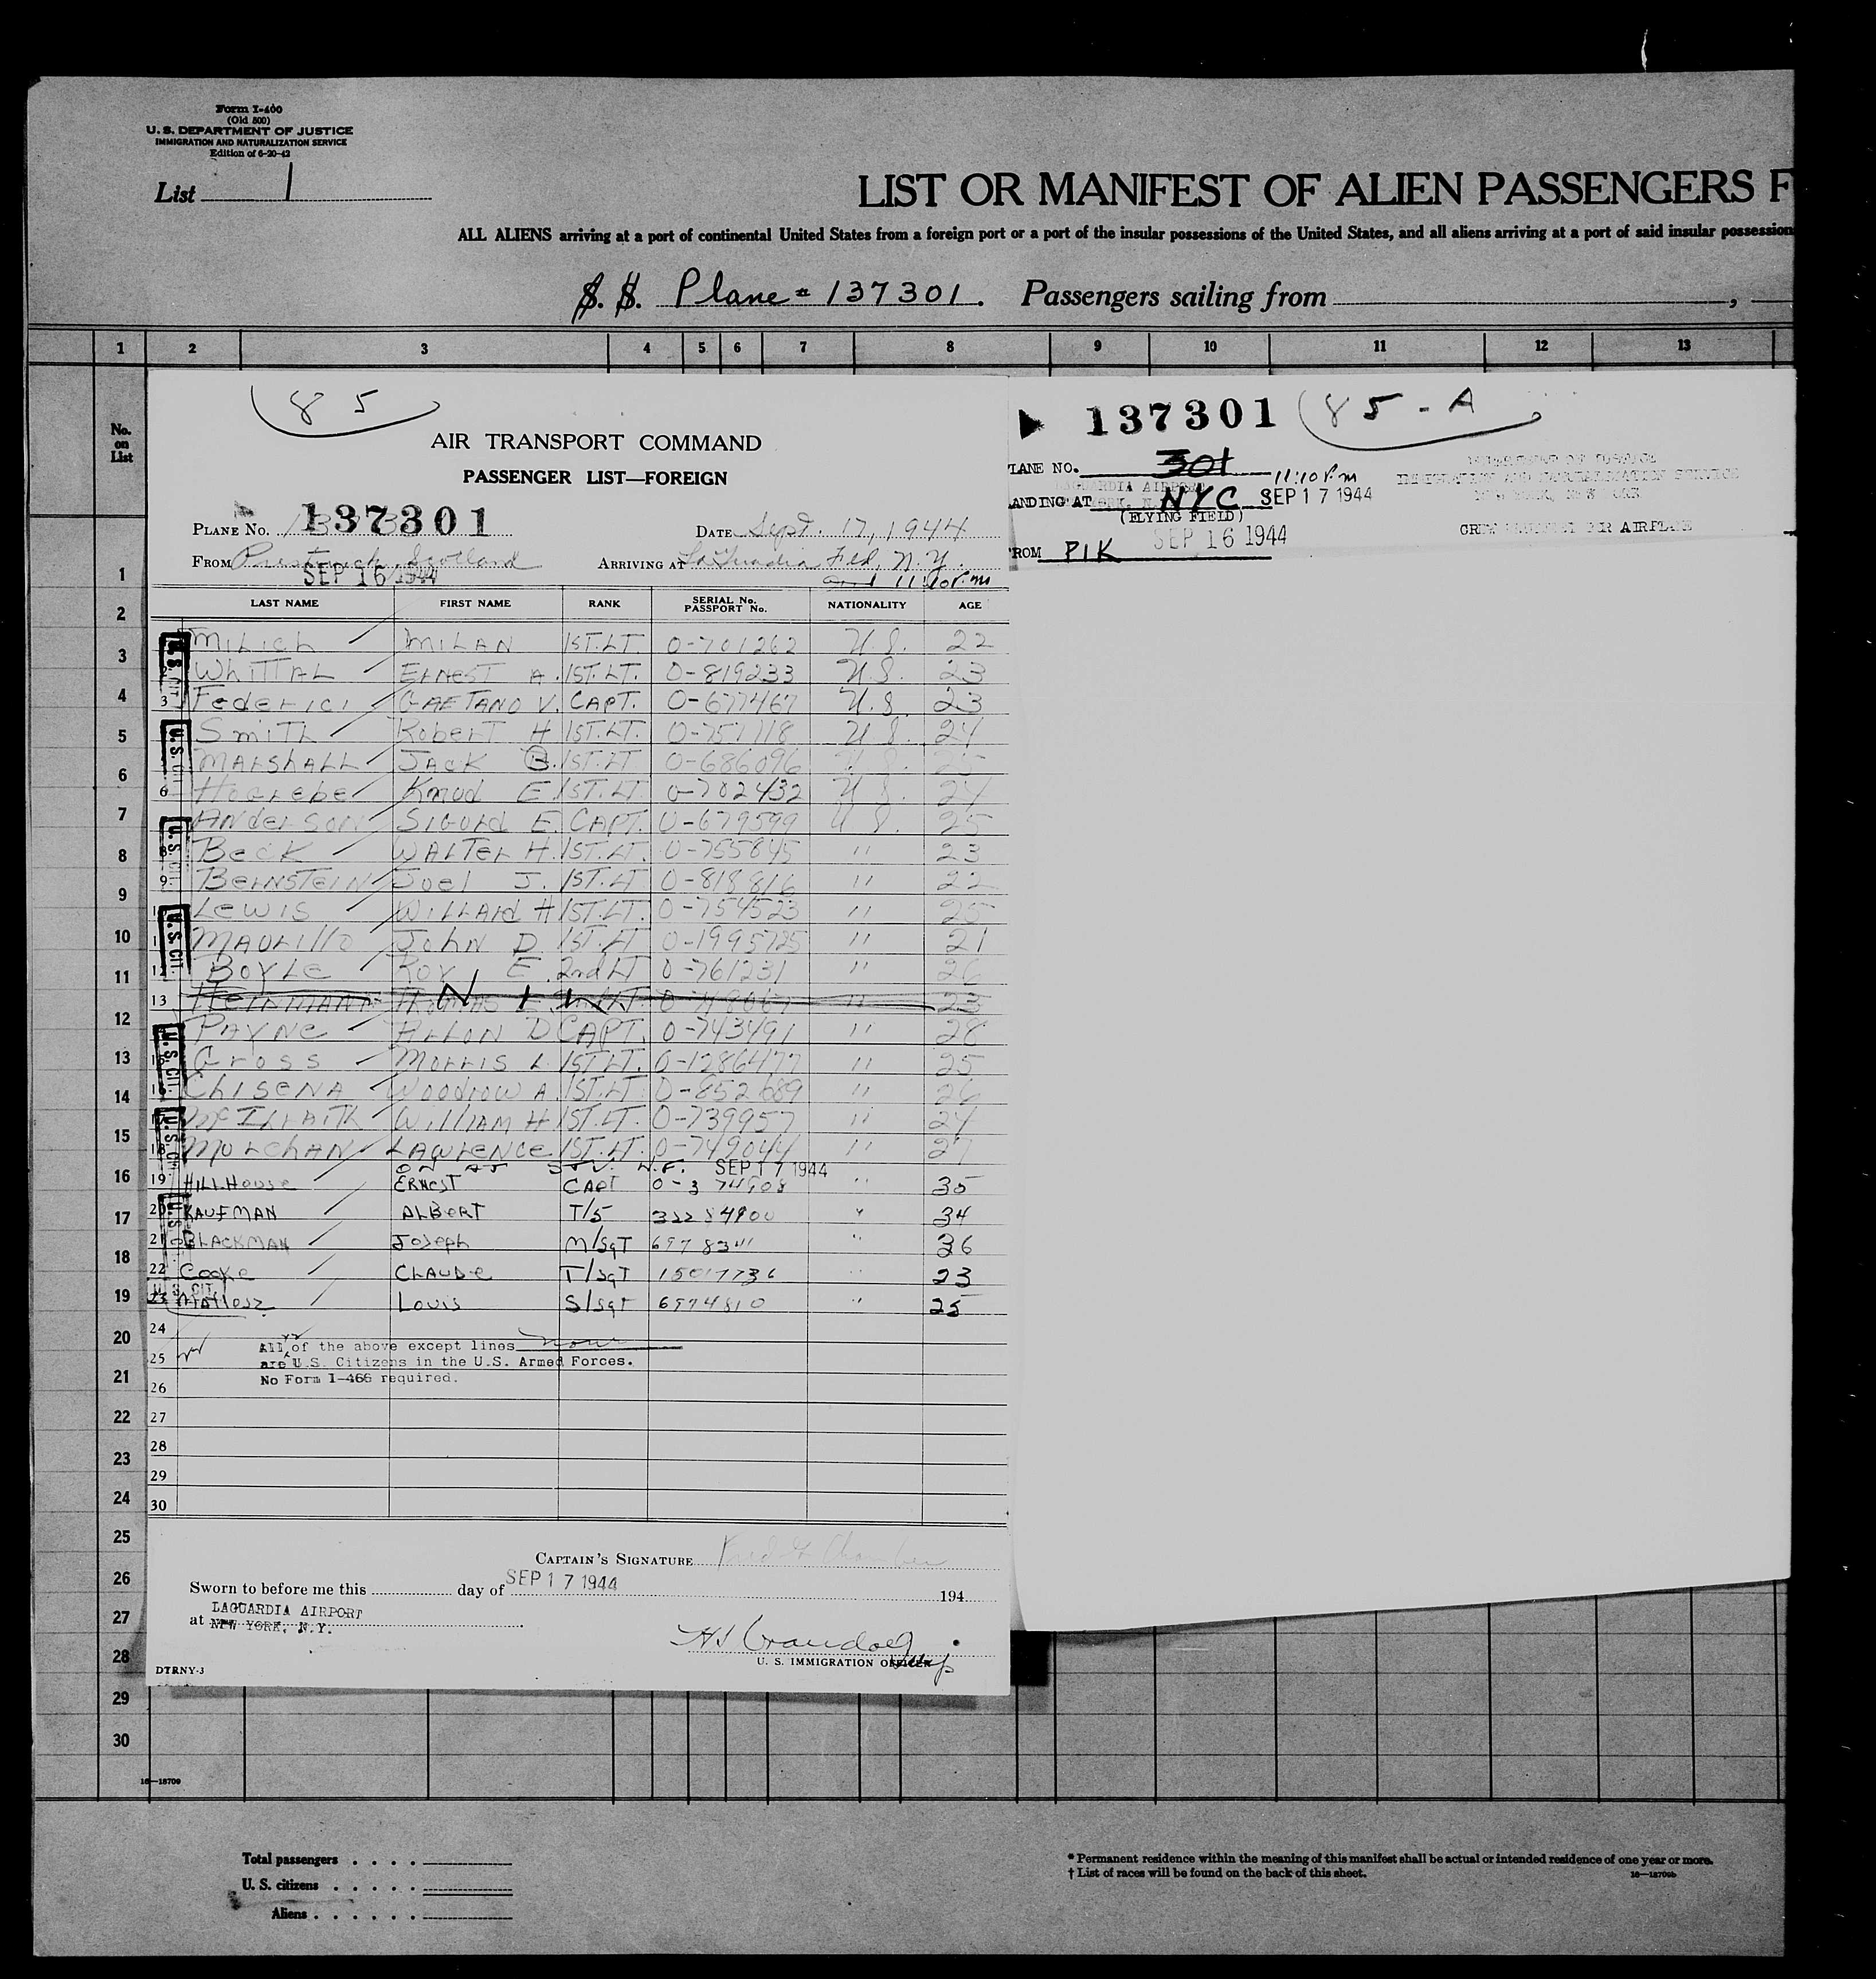 Form I-400
(Old 500)
U. S. DEPARTMENT OF JUSTICE
IMMIGRATION AND NATURALIZATION SERVICE
Edition of 6-20-42
List 1
LIST OR MANIFEST OF ALIEN PASSENGERS F
ALL ALIENS arriving at a port of continental United States from a foreign port or a port of the insular possessions of the United States, and all aliens arriving at a port of said insular possession
S. S. Plane # 137301. Passengers sailing from ,
1 2 3 4 5 6 7 8 9 10 11 12 13
No. on List
85
AIR TRANSPORT COMMAND
PASSENGER LIST—FOREIGN
PLANE NO. 137301 DATE Sept. 17, 1944
FROM Prestwick, Scotland ARRIVING AT LaGuardia Fld, N.Y.
SEP 16 1944 11:10 P.m
LAST NAME FIRST NAME RANK SERIAL No. PASSPORT No. NATIONALITY AGE
MILICH MILAN 1ST.LT. O-701262 U.S. 22
WHITTAL ERNEST A. 1ST.LT. O-819233 U.S. 23
3 FEDERICI GAETANO V. CAPT. O-677467 U.S. 23
SMITH ROBERT H 1ST.LT. O-751118 U.S. 24
MARSHALL JACK B. 1ST.LT O-686096 U.S. 25
6 Knud E. 1ST.LT O-702432 U.S. 24
ANDERSON SIGURD E. CAPT. O-679599 U.S. 25
8 BECK WALTER H. 1ST.LT. O-755845 " 23
9 BERNSTEIN JOEL J. 1ST.LT O-818816 " 22
LEWIS WILLARD H 1ST.LT. O-754523 " 25
MAURILLO JOHN D. 1ST.LT O-1995725 " 21
12 BOYLE ROY E. 2nd LT O-761231 " 26
13 HEINMANN THOMAS " 23
PAYNE ARLON D CAPT. O-743491 " 28
GROSS MORRIS L. 1ST.LT. O-1286477 " 25
CHISENA WOODROW A. 1ST.LT O-852689 " 26
McILRAITH WILLIAM H 1ST.LT. O-739957 " 24
18 MOLCHAN LAWRENCE 1ST.LT. O-749044 " 27
ON AT SEP 17 1944
19 HILLHOUSE ERNEST CAPT O-374508 " 35
20 KAUFMAN ALBERT T/5 32284900 " 34
21 BLACKMAN JOSEPH M/SgT 6978341 " 36
22 COOKE CLAUDE T/SgT 15017736 " 23
23 LOUIS S/SgT 6974810 " 25
U.S. CIT.
24
25
26
27
28
29
30
All of the above except lines none
are U.S. Citizens in the U.S. Armed Forces.
No Form I-466 required.
CAPTAIN'S SIGNATURE
Sworn to before me this day of SEP 17 1944 194
at LAGUARDIA AIRPORT
NEW YORK, N.Y.
U. S. IMMIGRATION OFFICER
DTRNY-3
137301 85-A
PLANE NO. 301 11:10 P.m
LAGUARDIA AIRPORT
LANDING AT NYC SEP 17 1944
(FLYING FIELD)
SEP 16 1944
FROM PIK
DEPARTMENT OF JUSTICE
IMMIGRATION AND NATURALIZATION SERVICE
NEW YORK, NEW YORK
1
2
3
4
5
6
7
8
9
10
11
12
13
14
15
16
17
18
19
20
21
22
23
24
25
26
27
28
29
30
16—18709
Total passengers . . . .
U. S. citizens . . . . .
Aliens . . . . . .
* Permanent residence within the meaning of this manifest shall be actual or intended residence of one year or more.
† List of races will be found on the back of this sheet.